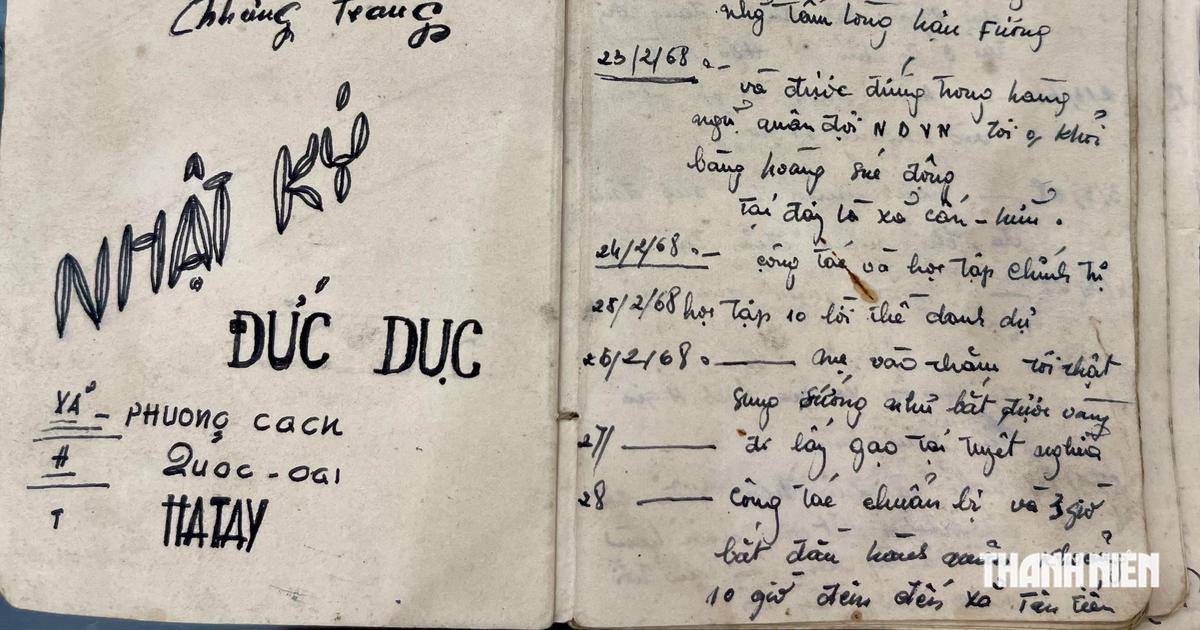 Chhảng Trang
NHẬT KÝ
ĐỨC DỤC
XÃ - PHUONG CACH
H QUOC - OAI
T HATAY
nhớ tấm lòng hậu Fương
23/2/68 .-
và được đứng trong hàng
ngũ quân đội N D V N tôi khỏi
bàng hoàng đông
Tại đây là xã cấn - hữu .
24/2/68 .- công tác và học tập chính trị
25/2/68 học tập 10 lời thề danh dự
26/2/68 .— mẹ vào thăm tôi thật
sung sướng như bắt được vàng
27/ — đi lấy gạo tại tuyết nghĩa
28 — công tác chuẩn bị và 3 giờ
bắt đầu hành quân
10 giờ đêm đến xã Tân tiến
THANH NIÊN